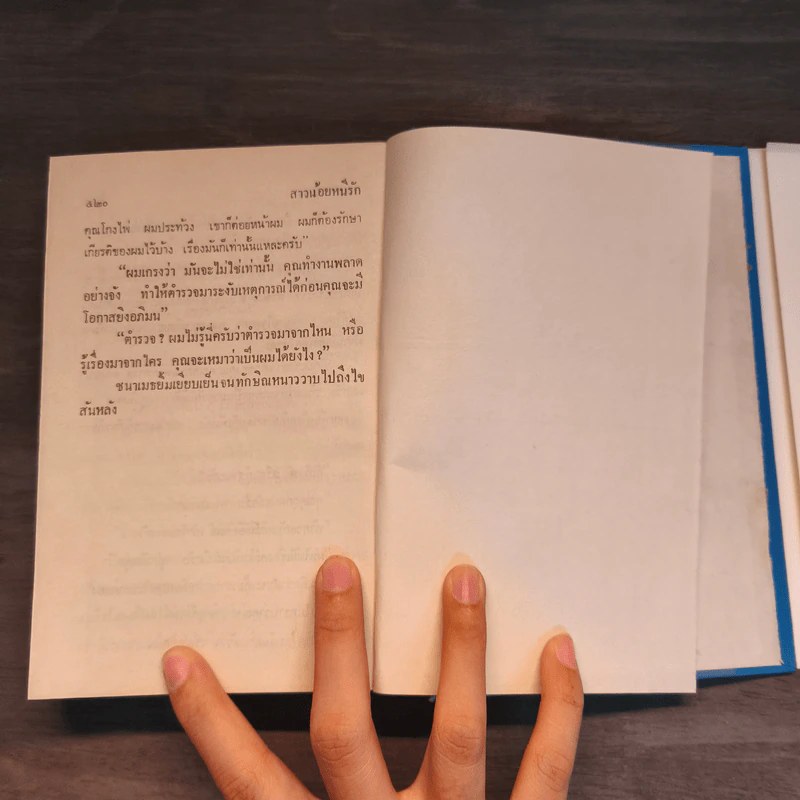 ๕๒๐
สาวน้อยหนีรัก
คุณโกงไพ่ ผมประท้วง เขาก็ต่อยหน้าผม ผมก็ต้องรักษา
เกียรติของผมไว้บ้าง เรื่องมันก็เท่านั้นแหละครับ”
“ผมเกรงว่า มันจะไม่ใช่เท่านั้น คุณทำงานพลาด
อย่างจัง ทำให้ตำรวจมาระงับเหตุการณ์ได้ก่อนคุณจะมี
โอกาสยิงอภิมน”
“ตำรวจ ? ผมไม่รู้นี่ครับว่าตำรวจมาจากไหน หรือ
รู้เรื่องมาจากใคร คุณจะเหมาว่าเป็นผมได้ยังไง ?”
ชนาเมธยิ้มเยียบเย็น จนทักษิณหนาววาบไปถึงไข
สันหลัง